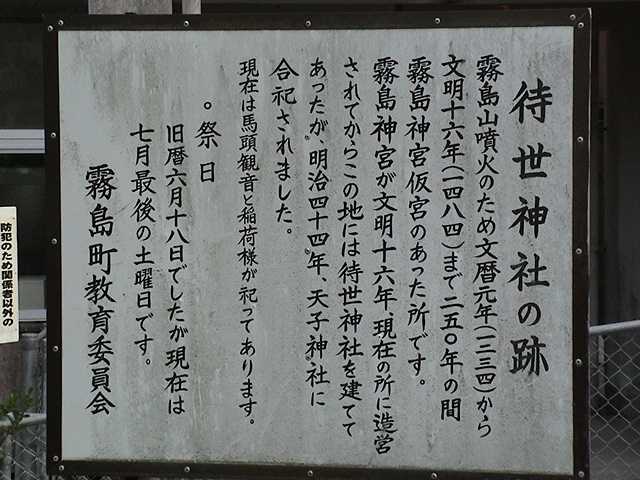 待世神社の跡
霧島山噴火のため文暦元年(一二三四)から
文明十六年(一四八四)まで二五〇年の間
霧島神宮仮宮のあった所です。
霧島神宮が文明十六年、現在の所に造営
されてからこの地には待世神社を建てて
あったが、明治四十四年、天子神社に
合祀されました。
現在は馬頭観音と稲荷様が祀ってあります。
。祭日
旧暦六月十八日でしたが現在は
七月最後の土曜日です。
霧島町教育委員会
防犯のため関係者以外の